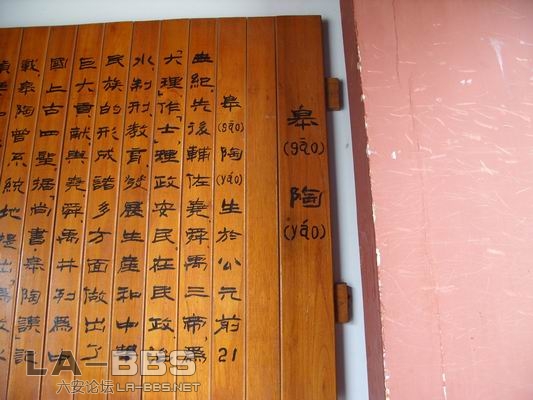 皋(gāo)陶(yáo)
皋(gāo)陶(yáo)生於公元前21
世紀,先後輔佐堯舜禹三帝,爲
“大理”作“士”,理政安民,在民政治
水制刑教育,發展生産和中華
民族的形成諸多方面做出了
巨大貢獻,與堯舜禹并列爲中
國上古四聖,據《尚書·皋陶謨》記
載,皋陶曾系統地提出“爲政
LA-BBS
六安论坛LA-BBS.NET